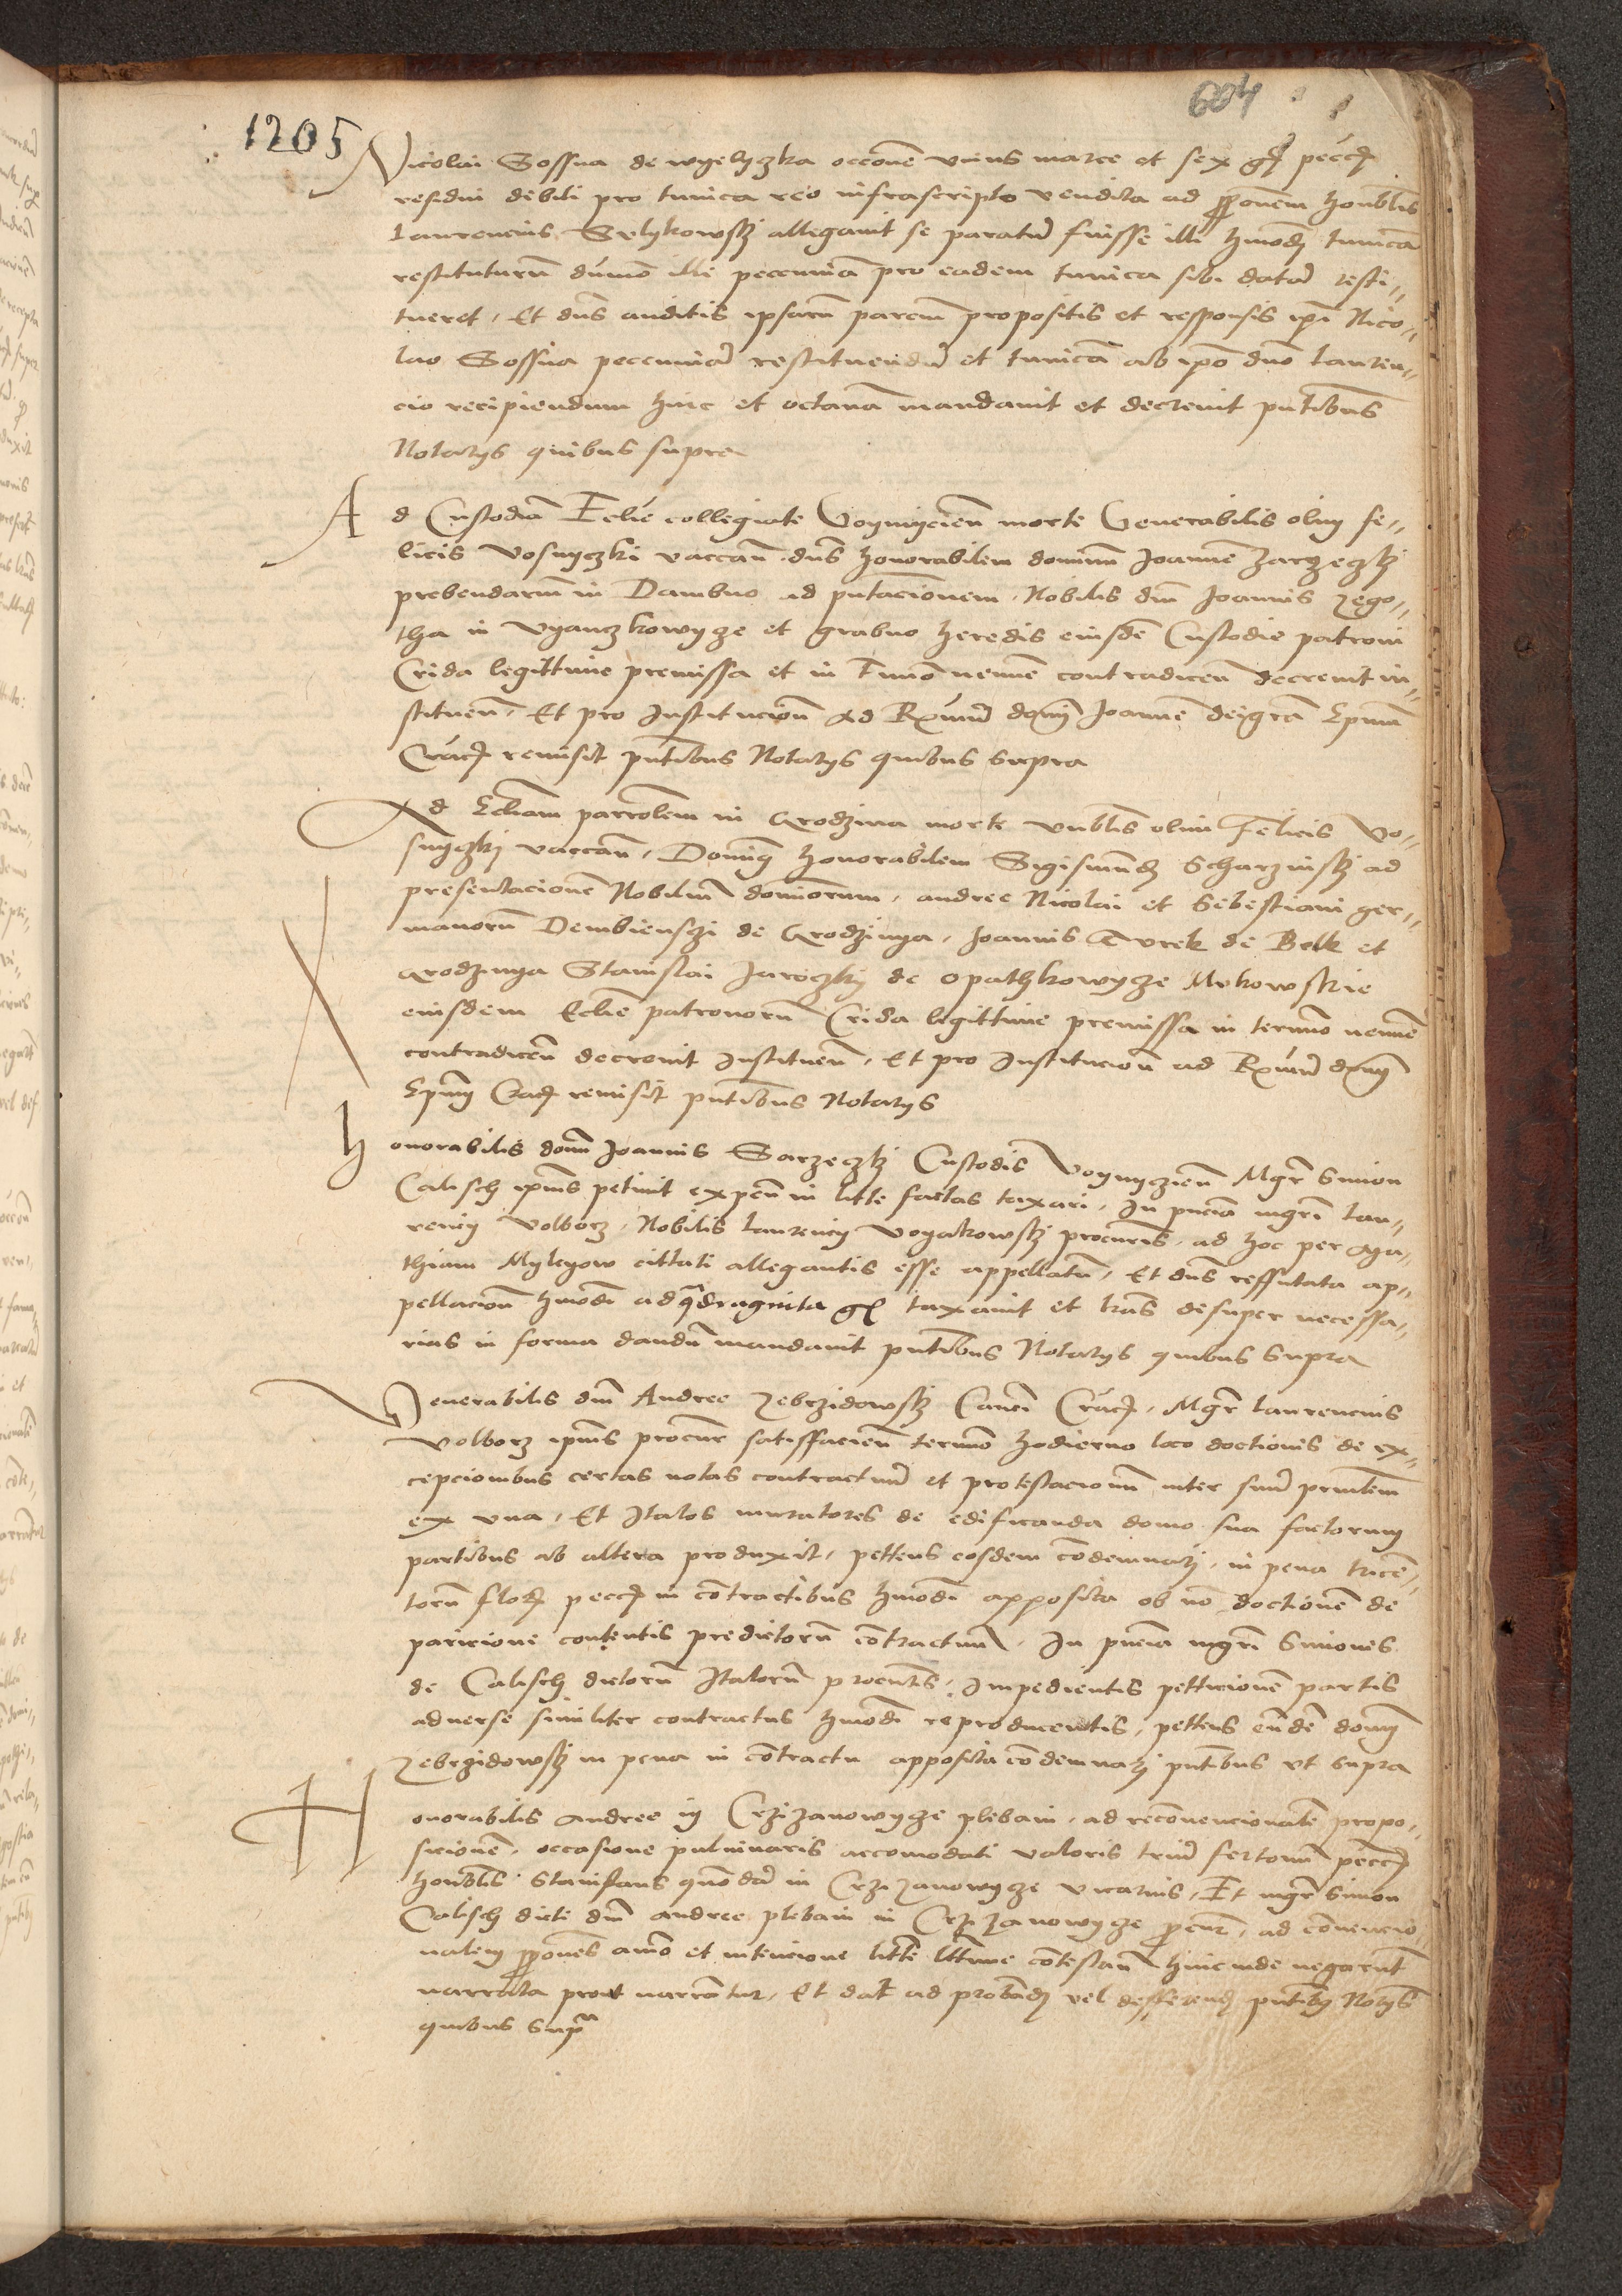 604
1205
Nicolai Sossna de wyelyczka occōne vnius marce et sex gř pecč
residui debiti pro tunica reo infrascripto vendita ad ꝓponem honblis
Laurencius Selykowsky allegavit se paratū fuisse illi hmōdi tunicā
restituturum dūmō illi pecuniā pro eadem tunica sibi datā resti-
tueret, Et dns auditis ipsarū parcium propositis et responsis ipī Nico-
lao Sossna pecuniā restituendā et tunicā ab ipō dno Lauren-
cio recipiendum hinc et octavā mandavit et decrevit pntibus
Notarys quibus supra
Ad Custodiā Eclie collegiate Voyniycień morte Venerabilis olim fe-
licis Vosnyczki vaccań dns honorabilem dominum Joannē Zarzeczky
prebendarium in Dambno ad pntacionem Nobilis dni Joannis Zego-
tha in Vyanczkowycze et grabno heredis eiusdē Custodie patroni
Crida legittime premissa et in Tmino neminē contradiceń decrevit in-
stitueń, Et pro Institucioń ad Rvmū domi Joannē deigra Epum
Crač remisit pntibus Notarys quibus supra
Ad Ecliam parrolem in Grodzina morte vnblis olim Felicis Vo-
snyczki vaccań, Dominus honorabilem Sigismundū Scharzinsky ad
presentacionē Nobilium dominorum, andree Nicolai et Sebestiani ger-
manorū Dembienszi de Grodzinya, Joannis Turek de Belk et
Grodzinya Stanislai Jaroczky de opathkowycze Mrkowskie
eiusdem Eclie patronorū Crida legittime premissa in termino neminē
contradiceń decrevit Institueń, Et pro Institucioń ad Rvmū domi
Epum Crač remisit pntibus Notarys
Honorabilis domi Joannis Sarzeczky Custodis Voyniyczień Mgr Simon
Calisch ipius petivit expeń in litte factas taxari, In pncia mgri Lau-
rency Volborz, Nobilis Laurency Voyakowsky procuris, ad hoc per Aga-
thiam Myleyow cittati allegantis esse appellatū, Et dns reffutata ap-
pellacioń hmōdi ad quadraginta gř taxavit et lras desuper necessa-
rias in forma dandū mandavit pntibus Notarys quibus supra
Venerabilis dni Andree Zebrzidowsky Canoi Crač, Mgr Laurencius
Volborz ipius procur satisfacień termino hodierno loco doctionis de ex-
cepcionibus certas notas contractuū et protestacionū inter suū prinlem
ex vna, Et Italos muratores de edificanda domo sua factorum
partibus ab altera produxit, pettens eosdem cōdemnari, in pena trice-
torū floř pecč in cōtractibus hmōdi apposita ob nō doctionē de
paricione contentis predictorū cōtractuū, In pncia mgri Simonis
de Calisch dictorū Italorū procuris, Impedientis petticionē partis
adverse similiter contractus hmōdi reproducentis, pettens eundē domi
Zebrzidowsky in pena in cōtractu apposita cōdemnari pntibus vt supra
Honorabilis andree in Crzizanowycze plebani, ad recōvencionalē propo-
sicionē, occasione pulvinaris accomodati valoris triū fertonū pecč
honblis Stanislaus quōdā in Crzizanowycze vicarius, Et mgr Simon
Calisch dicti dni andree plebani in Crzizanowycze procur, ad cōvencio-
nalem ꝓpones amō et intencione litte lttime cōtestań hincinde negarūt
narrata prout narrātur, Et dat ad probādū vel defferendū pntibus Notrys
quibus supra